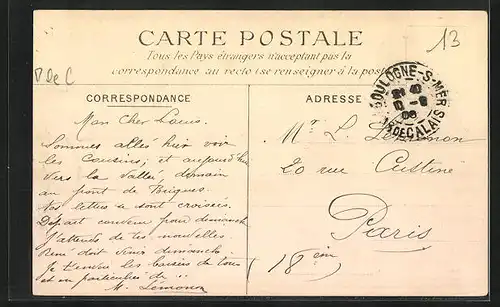 13
P de C
CARTE POSTALE
Tous les Pays étrangers n'acceptant pas la
correspondance au recto (se renseigner à la poste
CORRESPONDANCE
ADRESSE
BOULOGNE-S-MER
PAS DE CALAIS
Mon Cher Louis.
Sommes allés hier voir
les Cousins; et aujourd'hui
vers la Vallée, demain
au pont de Briques.
Nos lettres se sont croisées.
Départ convenu pour dimanche
J'attends de tes nouvelles
René doit venir dimanche.
Je t'envoie les baisers de tous
et en particulier de ...
M. Lémonon
Mr L. Lémonon
20 rue Custine
Paris
(18 ème)